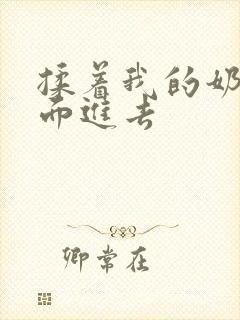 揉着我的奶
而进去
卿常在